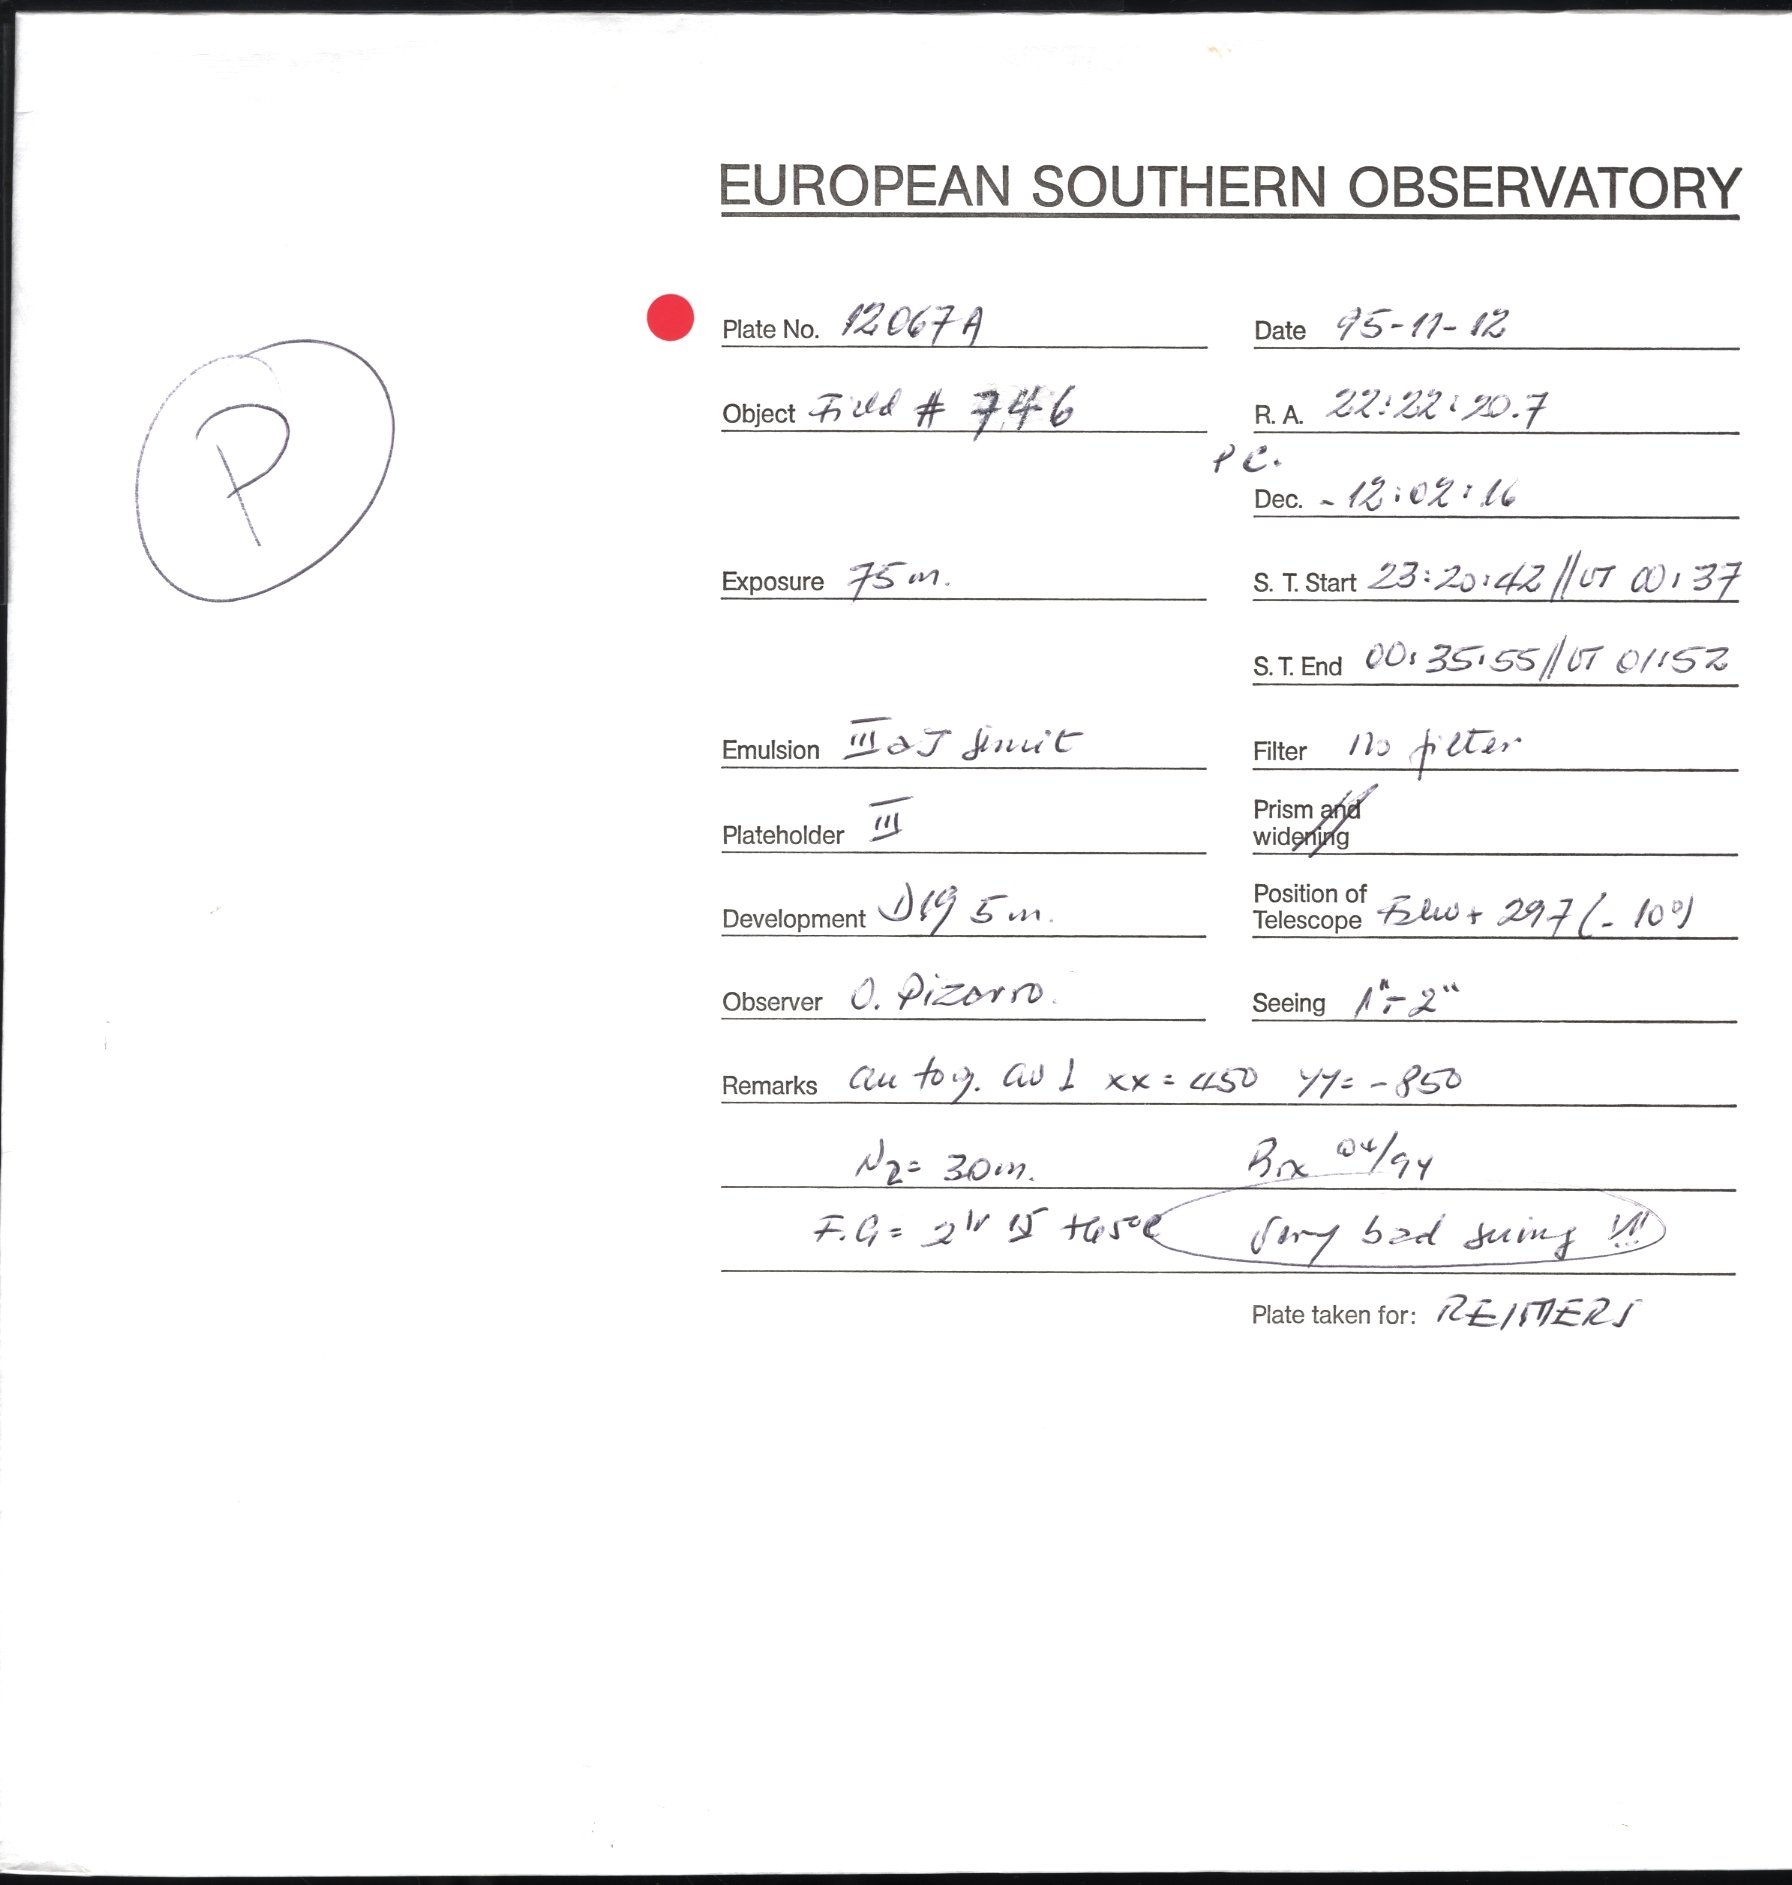 EUROPEAN SOUTHERN OBSERVATORY
Plate No. 12067A Date 95-11-12
Object Field # 746 R. A. 22:22:20.7
P
P C.
Dec. - 12:02:16
Exposure 75 m. S. T. Start 23:20:42 // UT 00:37
S. T. End 00:35:55 // UT 01:52
Emulsion III aJ Filter No filter
Plateholder III Prism and widening
Development D19 5 m. Position of Telescope + 297 (- 10°)
Observer O. Pizarro. Seeing 1" - 2"
Remarks autog. xx = 450 yy = - 850
N2 = 30 m. Box 04/94
F.G = 2hr +65°C Very bad seeing !!!
Plate taken for: REIMERS